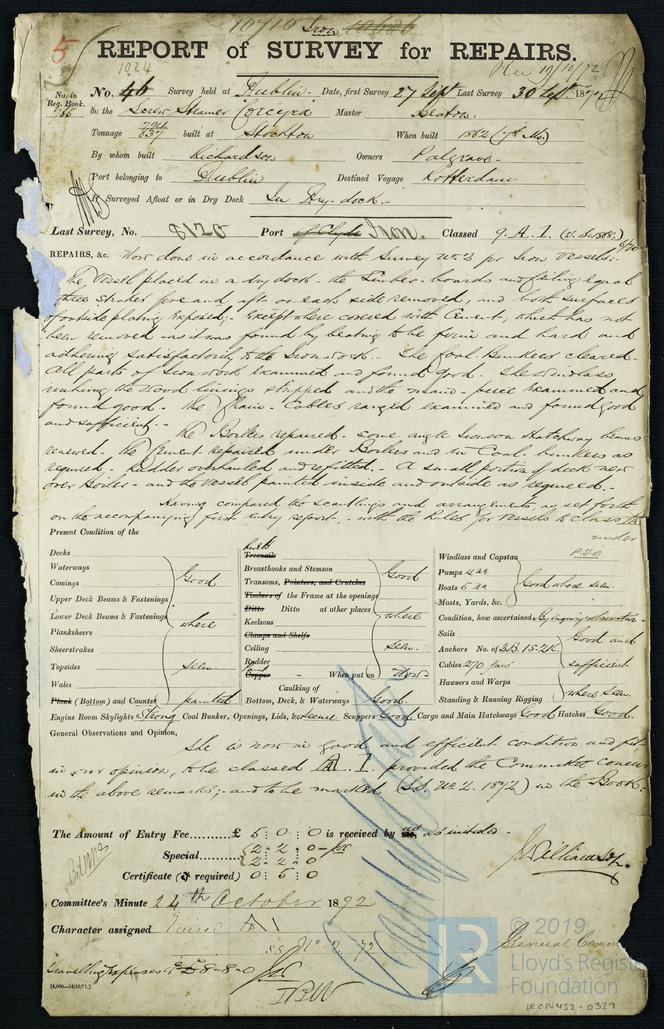 10710 Iron
5
REPORT of SURVEY for REPAIRS.
1024
Rec 19/10/72
No. in Reg. Book.
No. 46 Survey held at Dublin Date, first Survey 27 Sept Last Survey 30 Sept. 187
On the Screw Steamer Corcyra Master
Tonnage 637 built at Stockton When built 1862 (7th Mo.)
By whom built Richardson Owners Palgrave
Port belonging to Dublin Destined Voyage Rotterdam
If Surveyed Afloat or in Dry Dock In Dry-dock.
Last Survey, No. 8120 Port of Clyde Iron. Classed 9. A. 1.
REPAIRS, &c. Now done in accordance with Survey No. 3 for Iron Vessels:-
The Vessel placed in a dry dock - the Limber-boards and ceiling equal
three strakes fore and aft on each side removed, and both surfaces
of outside plating exposed; - Except where covered with Cement, which has not
been removed - as it was found by beating to be firm and hard and
adhering satisfactorily to the Iron stock. - The Coal Bunkers cleared -
All parts of Iron stock Examined and found good. The Windlass
unhung the Wood linings stripped and the main-piece Examined and
found good. - The Chain-Cables ranged examined and found good
and sufficient. -
The Boilers repaired - some angle Irons on Hatchway beams
renewed - the Cement repaired under Boilers and in Coal bunkers as
required. Rudder overhauled and refitted. - A small portion of deck new
over Boiler - and the Vessel painted inside and outside as required. -
Having compared the scantlings and arrangements, as set forth
on the accompanying first entry report, - with the Rules for Vessels to Class
under
P.T.O
Present Condition of the
Decks
Waterways
Comings
Upper Deck Beams & Fastenings
Lower Deck Beams & Fastenings
Planksheers
Sheerstrakes
Topsides
Wales
Plank (Bottom) and Counter
Good
where
seen
painted
Treenails
Breasthooks and Stemson
Transoms, Pointers, and Crutches
Timbers of the Frame at the openings
Ditto Ditto at other places
Keelsons
Clamps and Shelfs
Ceiling
Rudder
Copper - When put on Now
Caulking of
Bottom, Deck, & Waterways Good.
Good
where
seen.
Windlass and Capstan
Pumps
Boats
Masts, Yards, &c.
Good where seen.
Condition, how ascertained By enquiry & observation
Sails
Anchors No. of 3B. 1S. 2K.
Cables 270 fms
Hausers and Warps
Standing & Running Rigging
Good and
sufficient
where seen.
Engine Room Skylights Strong Coal Bunker, Openings, Lids, &c. Secure Scuppers Good Cargo and Main Hatchways Good Hatches Good.
General Observations and Opinion,
She is now in good and efficient condition and fit
in our opinion, to be classed A. 1. provided the Committee concur
in the above remarks; - and to be marked (SS. No. 2. 1872) in the Book. -
The Amount of Entry Fee....£ 5 : 0 : 0 is received by us, as included -
Special........ 2 : 2 : 0
2 2 0
Certificate (if required) 0 : 5 : 0
Committee's Minute 24th October 1872
Character assigned A1
S.S. No 2. 72
Travelling Expenses £8-8-0
[4,000—14/10/71.]
LR
© 2019
Lloyd's Register
Foundation
IRON452-0329